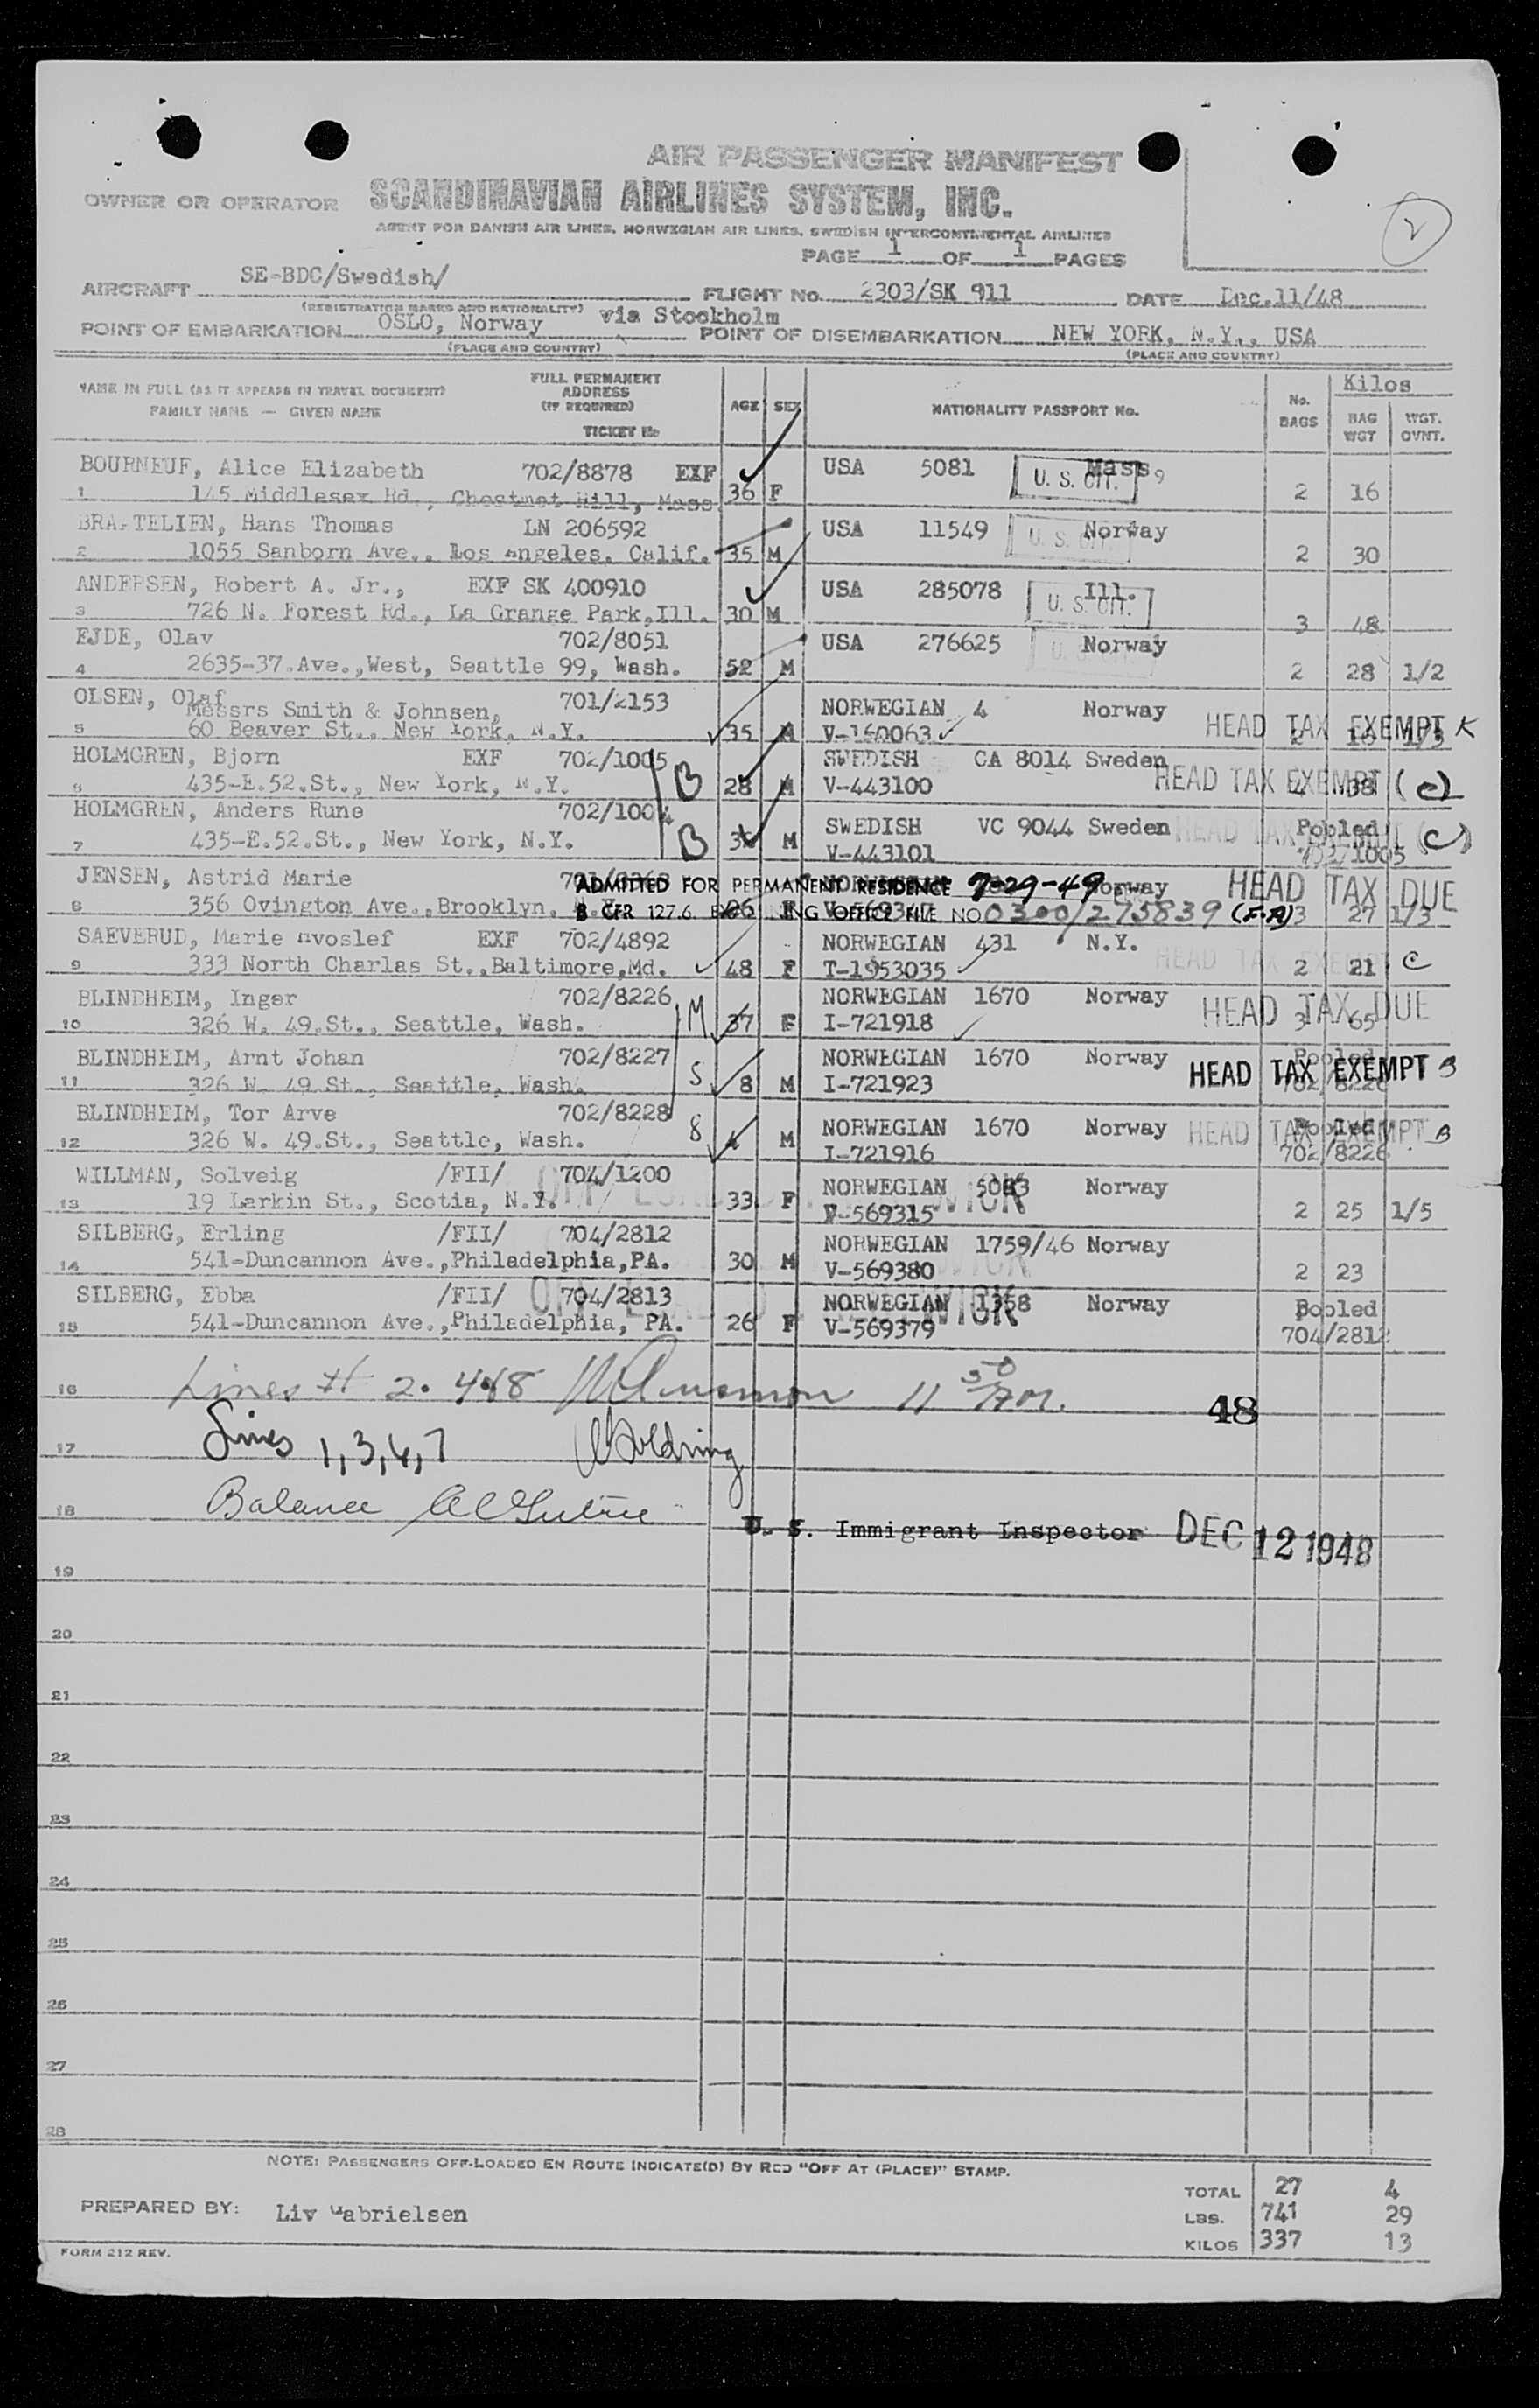 AIR PASSENGER MANIFEST
OWNER OR OPERATOR SCANDINAVIAN AIRLINES SYSTEM, INC.
AGENT FOR DANISH AIR LINES, NORWEGIAN AIR LINES, SWEDISH INTERCONTINENTAL AIRLINES
PAGE 1 OF 1 PAGES
AIRCRAFT SE-BDC/Swedish/ FLIGHT No. 2303/SK 911 DATE Dec.11/48
(REGISTRATION MARKS AND NATIONALITY)
POINT OF EMBARKATION OSLO, Norway via Stockholm POINT OF DISEMBARKATION NEW YORK, N.Y., USA
(PLACE AND COUNTRY) (PLACE AND COUNTRY)
NAME IN FULL (AS IT APPEARS IN TRAVEL DOCUMENT) FULL PERMANENT ADDRESS (IF REQUIRED) Kilos
FAMILY NAME — GIVEN NAME TICKET No AGE SEX NATIONALITY PASSPORT No. No. BAGS BAG WGT WGT. OVNT.
BOURNEUF, Alice Elizabeth 702/8878 EXF USA 5081 U. S. CIT. Mass.
1 145 Middlesex Rd., Chestnut Hill, Mass. 36 F 2 16
BRA-TELIEN, Hans Thomas LN 206592 USA 11549 U. S. CIT. Norway
2 1055 Sanborn Ave., Los Angeles, Calif. 35 M 2 30
ANDERSEN, Robert A. Jr., EXF SK 400910 USA 285078 U. S. CIT. Ill.
3 726 N. Forest Rd., La Grange Park,Ill. 30 M 3 48
EJDE, Olav 702/8051 USA 276625 Norway
4 2635-37.Ave.,West, Seattle 99, Wash. 52 M 2 28 1/2
OLSEN, Olaf 701/2153 NORWEGIAN 4 Norway
Messrs Smith & Johnsen,
5 60 Beaver St., New York, N.Y. 35 M V-160063 HEAD TAX EXEMPT K
HOLMGREN, Bjorn EXF 702/1005 SWEDISH CA 8014 Sweden
6 435-E.52.St., New York, N.Y. B 28 M V-443100 HEAD TAX EXEMPT (C) 38
HOLMGREN, Anders Rune 702/1004 SWEDISH VC 9044 Sweden HEAD TAX EXEMPT (C) Pooled
7 435-E.52.St., New York, N.Y. B M V-443101 702/1005
JENSEN, Astrid Marie ADMITTED FOR PERMANENT RESIDENCE 7-29-49 Norway HEAD TAX DUE
8 356 Ovington Ave.,Brooklyn, 26 F 8 CFR 127.6 OFFICE FILE NO. 0300/275839 (F-A) 3 27 1/3
SAEVERUD, Marie Avoslef EXF 702/4892 NORWEGIAN 431 N.Y.
9 333 North Charlas St.,Baltimore,Md. 48 F T-1953035 HEAD TAX EXEMPT 2 21 C
BLINDHEIM, Inger 702/8226 M NORWEGIAN 1670 Norway HEAD TAX DUE
10 326 W. 49.St., Seattle, Wash. 37 F I-721918 3 65
BLINDHEIM, Arnt Johan 702/8227 S NORWEGIAN 1670 Norway Pooled
11 326 W. 49.St., Seattle, Wash. 8 M I-721923 HEAD TAX EXEMPT B 702/8226
BLINDHEIM, Tor Arve 702/8228 NORWEGIAN 1670 Norway HEAD TAX EXEMPT B Pooled
12 326 W. 49.St., Seattle, Wash. 4 M I-721916 702/8226
WILLMAN, Solveig /FII/ 704/1200 NORWEGIAN Norway
13 19 Larkin St., Scotia, N.Y. 33 F V-569315 2 25 1/5
SILBERG, Erling /FII/ 704/2812 NORWEGIAN 1759/46 Norway
14 541-Duncannon Ave.,Philadelphia,PA. 30 M V-569380 2 23
SILBERG, Ebba /FII/ 704/2813 NORWEGIAN 1358 Norway Pooled
15 541-Duncannon Ave.,Philadelphia, PA. 26 F V-569379 704/2812
16 Lines # 2. 4.8 11 50 AM. 48
17 Lines 1,3,6,7 Goldring
18 Balance
U. S. Immigrant Inspector DEC 12 1948
19
20
21
22
23
24
25
26
27
28
NOTE: PASSENGERS OFF-LOADED EN ROUTE INDICATE(D) BY RED "OFF AT (PLACE)" STAMP.
PREPARED BY: Liv Gabrielsen
TOTAL 27 4
LBS. 741 29
KILOS 337 13
FORM 212 REV.